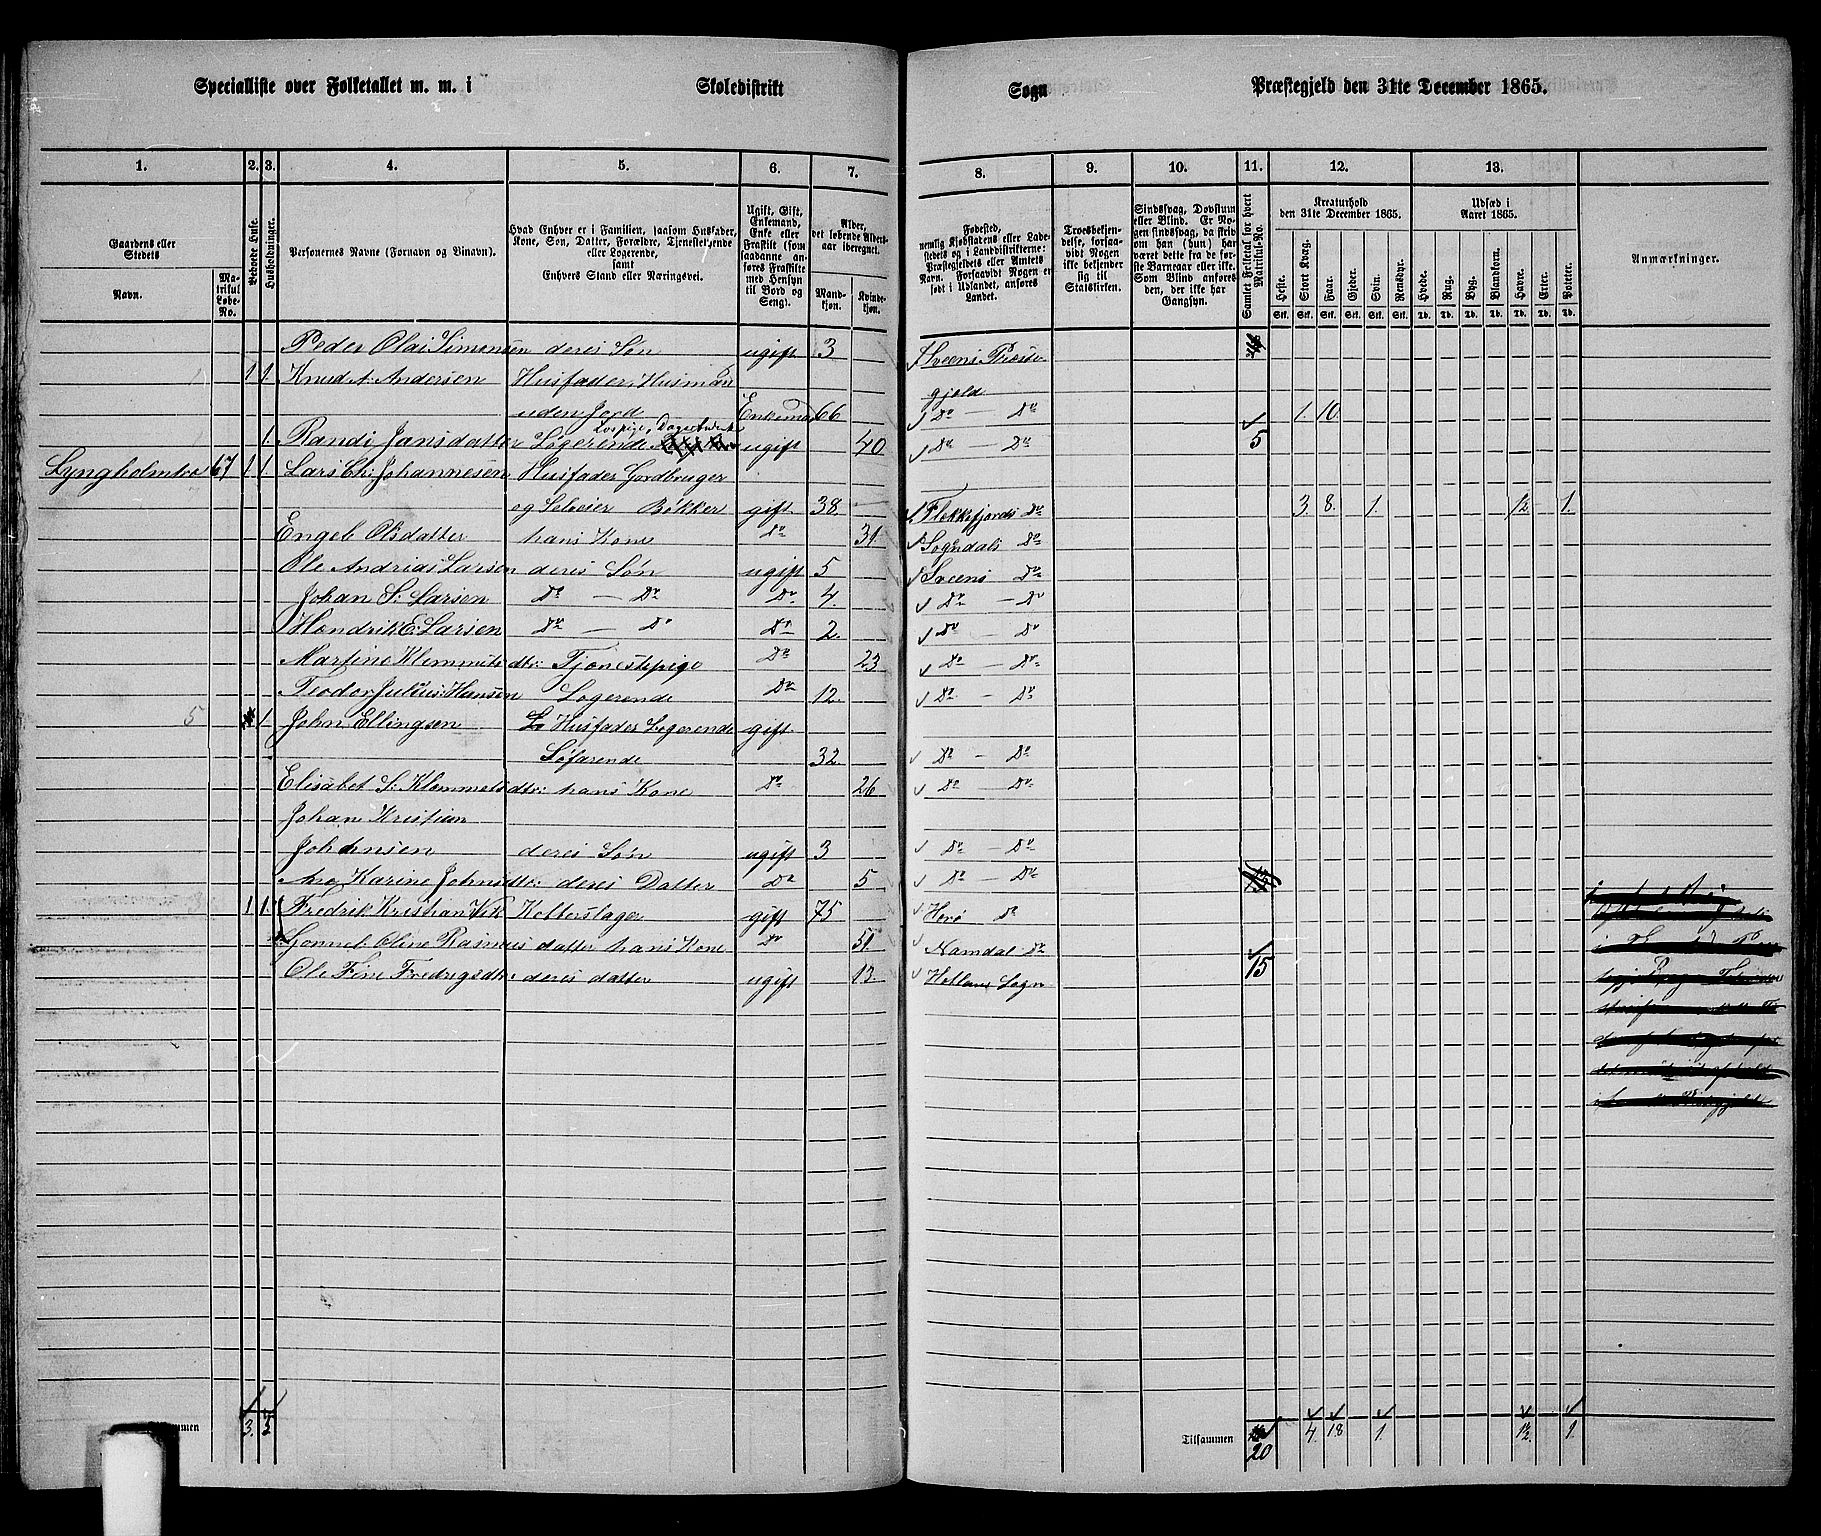 Specialliste over Folketallet m. m. i Skoledistrikt Sogn Præstegjeld den 31te December 1865.
1. 2. 3. 4. 5. 6. 7. 8. 9. 10. 11. 12. 13.
Gaardens eller Stedets
Navn.
Matrikul Løbe-No.
Beboede Huse.
Husholdninger.
Personernes Navne (Fornavn og Tilnavn).
Hvad Enhver er i Familien, saasom Husfader,
Kone, Søn, Datter, Forældre, Tjenestetyende
eller Logerende,
samt
Enhvers Stand eller Næringsvei.
Ugift, Gift,
Enkemand,
Enke eller
Fraskilt (som
saadanne anføres
Fraskilte
med Hensyn
til Bord og
Seng).
Alder,
det løbende Aldersaar
iberegnet.
Mandkjøn.
Kvindekjøn.
Fødested,
nemlig Kjøbstadens eller Ladestedets
og i Landdistrikterne:
Præstegjeldets eller Amtets
Navn. Forsaavidt Nogen er
født i Udlandet, anføres
Landet.
Troesbekjendelse,
forsaavidt
Nogen
ikke bekjender
sig til
Statskirken.
Sindssvag, Døvstum
eller Blind. Er Nogen
sindssvag, da skrives
om han (hun) har
været dette fra de første
Barneaar eller ikke.
Som Blind anføres
den, der ikke har
Gangsyn.
Samlet Folketal for hvert Matrikul-No.
Kreaturhold
den 31te December 1865.
Heste. Stort Kvæg. Faar. Gjeder. Svin. Rensdyr.
Stk. Stk. Stk. Stk. Stk. Stk.
Udsæd i
Aaret 1865.
Hvede. Rug. Byg. Blandkorn. Havre. Erter. Poteter.
Td. Td. Td. Td. Td. Td. Td.
Anmærkninger.
Peder Olai Simonsen deres Søn ugift 3 Sveens Præste
1 1. Knud A. Andersen Husfader, Husman gjeld
uden Jord Enkemd 66 Do — Do 1. 10.
Løspige, Dagarbeide
1. Randi Jansdatter Logerende ugift 40. Do — Do 5
Lyngholmbra 67 1. 1. Lars Ch: Johannesen Husfader Gordbruger
og Selveier Bøkker gift 38. Flekkefjords Do 3. 8. 1. 1½ 1.
Engeb Olsdatter hans Kone Do 31. Sogndals Do
Ole Andrias Larsen deres Søn ugift 5 Sveens Do
Johan S: Larsen Do — Do Do 4. Do — Do
Hendrik E. Larsen Do — Do Do 2. Do — Do
Martine Klemmitsdtr: Tjenestepige Do 23 Do — Do
Teodor Julius Hansen Logerende Do 12. Do — Do
5 1. John Ellingsen Husfader Logerende gift
Søfarende 32. Do — Do
Elisabet S: Klemmetsdtr: hans Kone Do 26 Do — Do
Johan Kristian
Johnsen deres Søn ugift 3 Do — Do
Ane Karine Johnsdtr: deres Datter Do 5 Do — Do
3 1. 1. Fredrik Kristian Vik Kobberslager gift 75 Herø Do
Gonnel Oline Rasmus datter hans Kone Do 51. Namdal Do
Ole Fine Fredrigsdtr: deres datter ugift 13. Hetland Sogn 15
Tilsammen 4. 18 1. 1½. 1.
20